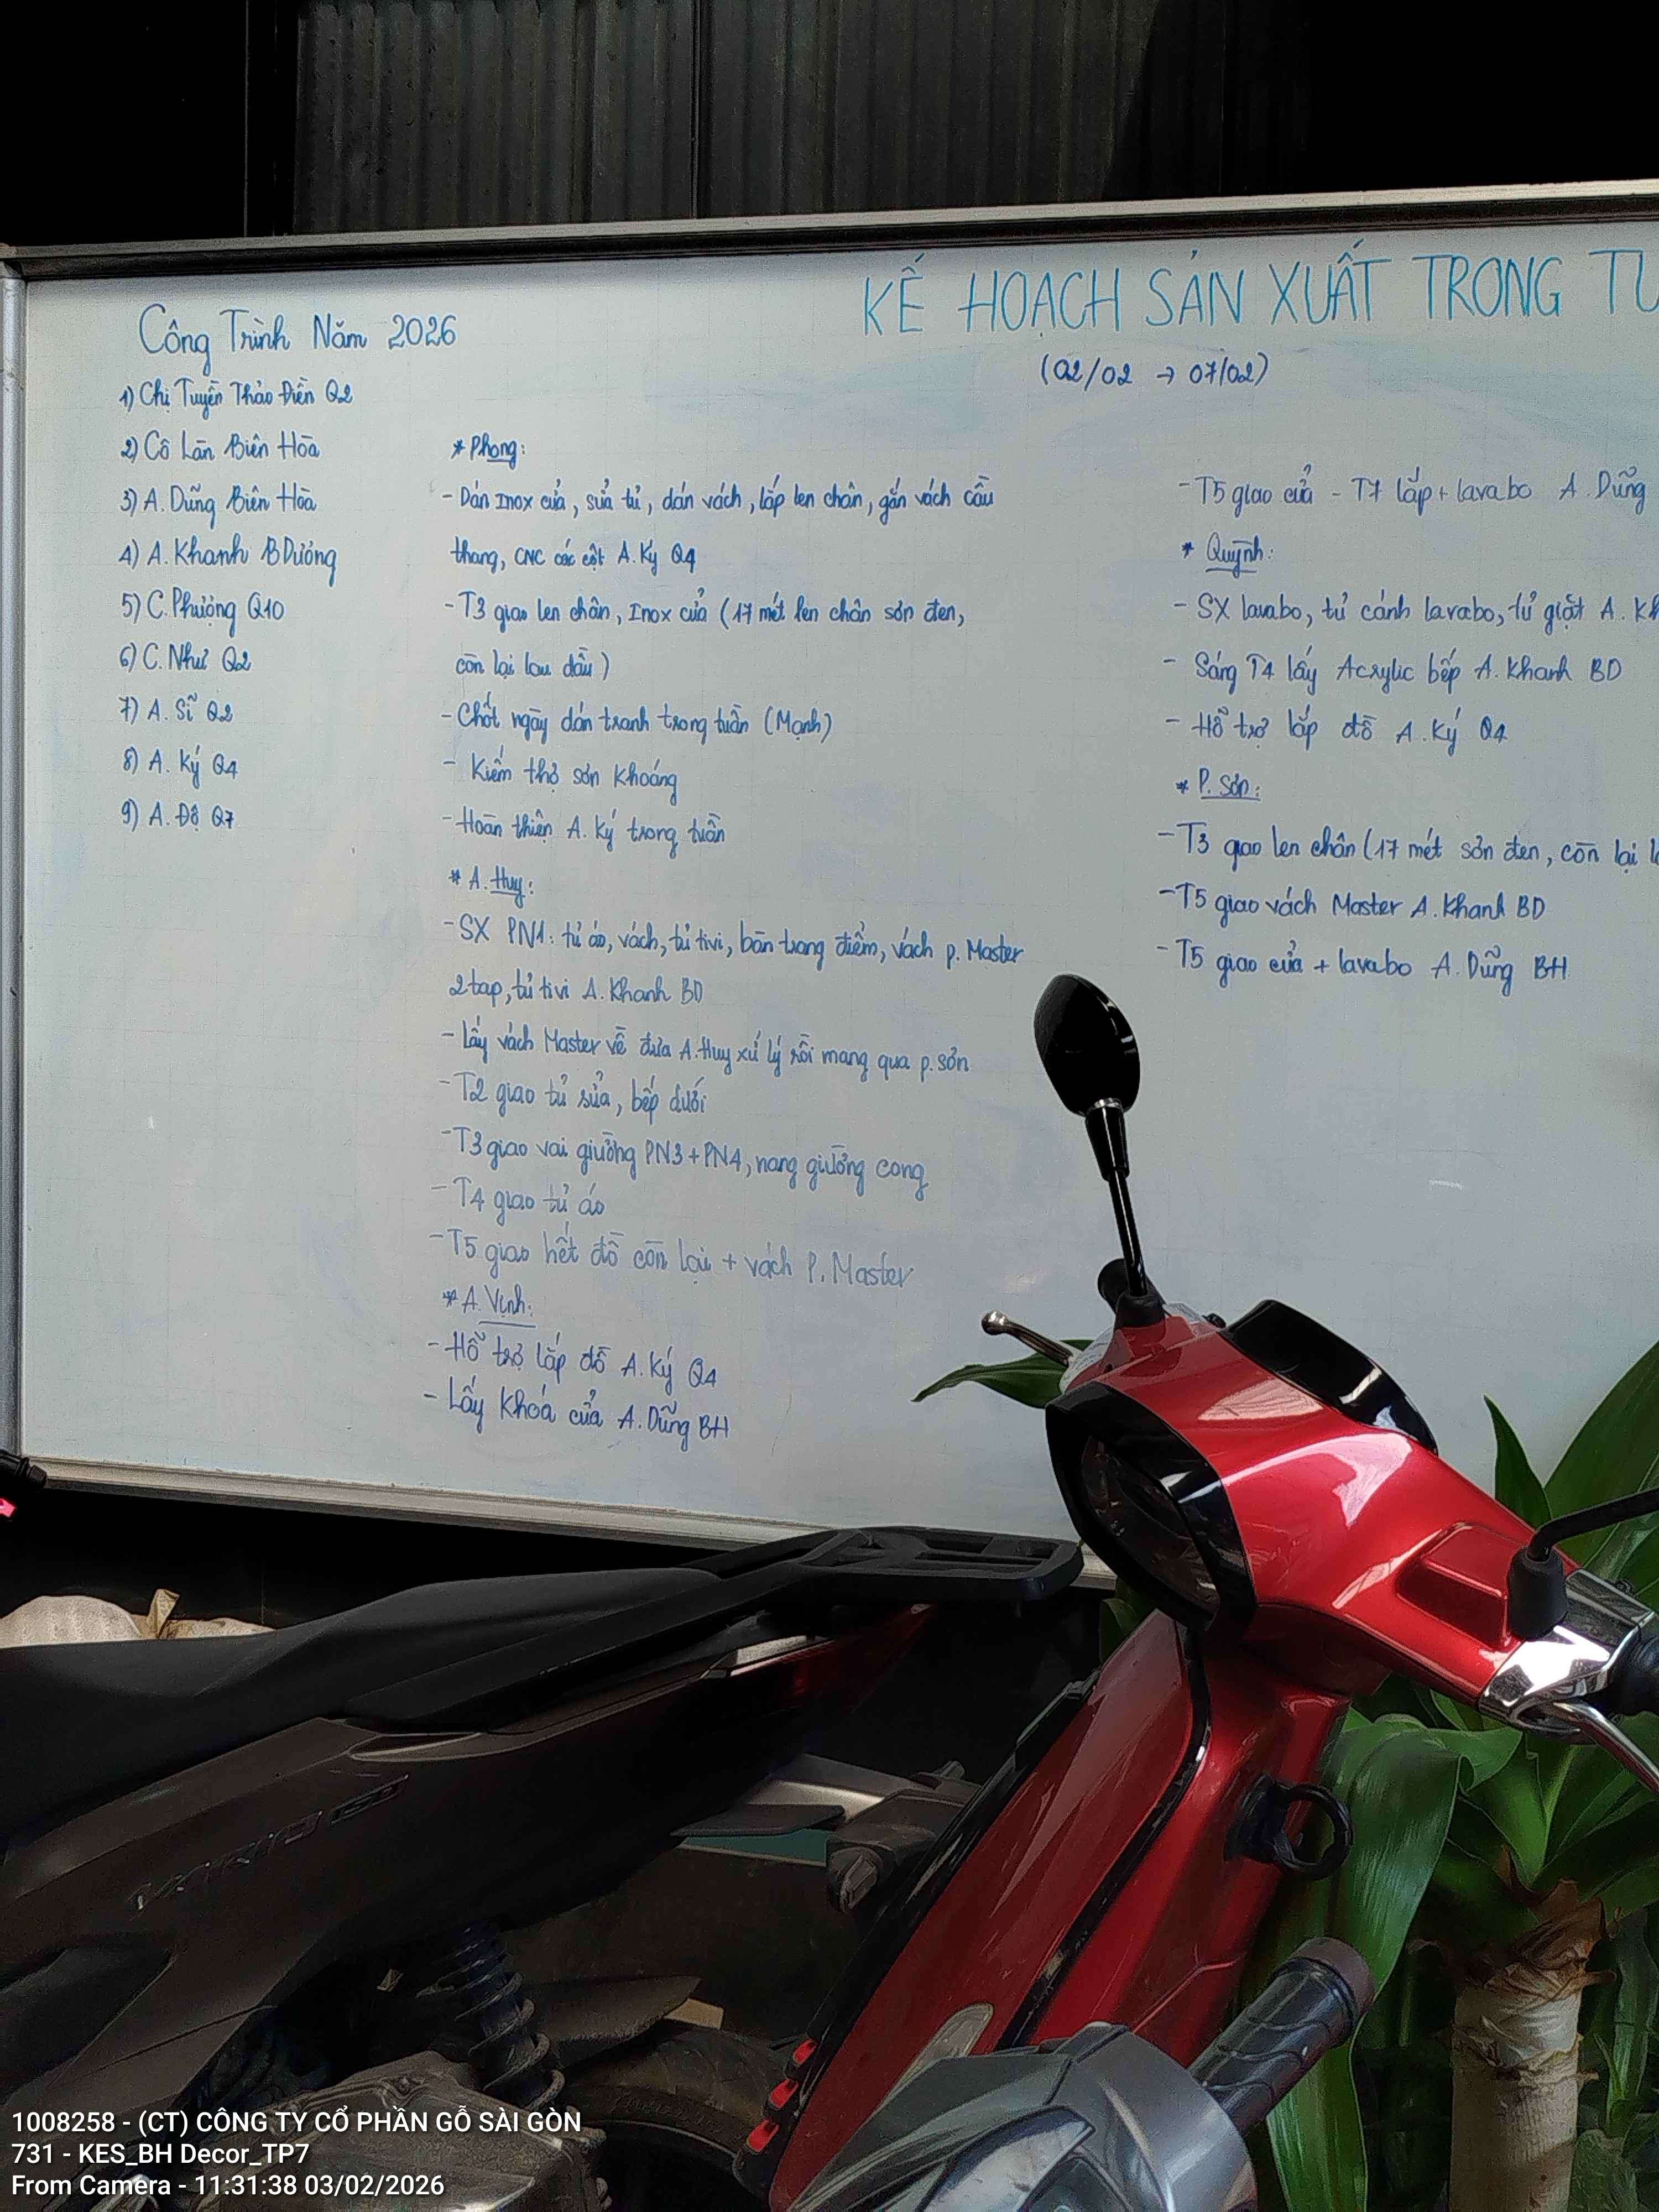 KẾ HOẠCH SẢN XUẤT TRONG TU
(02/02 → 07/02)
Công Trình Năm 2026
1) Chị Tuyền Thảo Điền Q2
2) Cô Lan Biên Hòa
3) A. Dũng Biên Hòa
4) A. Khanh BDương
5) C. Phượng Q10
6) C. Như Q2
7) A. Sĩ Q2
8) A. Ký Q4
9) A. Độ Q7
* Phong:
- Dán Inox cửa, sửa tủ, dán vách, lắp len chân, gắn vách cầu
thang, CNC các cột A. Ký Q4
- T3 giao len chân, Inox cửa (17 mét len chân sơn đen,
còn lại lau dầu)
- Chốt ngày dán tranh trong tuần (Mạnh)
- Kiếm thợ sơn khoáng
- Hoàn thiện A. Ký trong tuần
* A. Huy:
- SX PN1: tủ áo, vách, tủ tivi, bàn trang điểm, vách p. Master
2 tap, tủ tivi A. Khanh BD
- Lấy vách Master về đưa A. Huy xử lý rồi mang qua p. sơn
- T2 giao tủ sửa, bếp dưới
- T3 giao vai giường PN3 + PN4, nang giường cong
- T4 giao tủ áo
- T5 giao hết đồ còn lại + vách P. Master
* A. Vinh:
- Hỗ trợ lắp đồ A. Ký Q4
- Lấy khóa cửa A. Dũng BH
- T5 giao cửa - T7 lắp + lavabo A. Dũng
* Quỳnh:
- SX lavabo, tủ cánh lavabo, tủ giặt A. Kh
- Sáng T4 lấy Acrylic bếp A. Khanh BD
- Hỗ trợ lắp đồ A. Ký Q4
* P. Sơn:
- T3 giao len chân (17 mét sơn đen, còn lại l
- T5 giao vách Master A. Khanh BD
- T5 giao cửa + lavabo A. Dũng BH
VARIO
1008258 - (CT) CÔNG TY CỔ PHẦN GỖ SÀI GÒN
731 - KES_BH Decor_TP7
From Camera - 11:31:38 03/02/2026